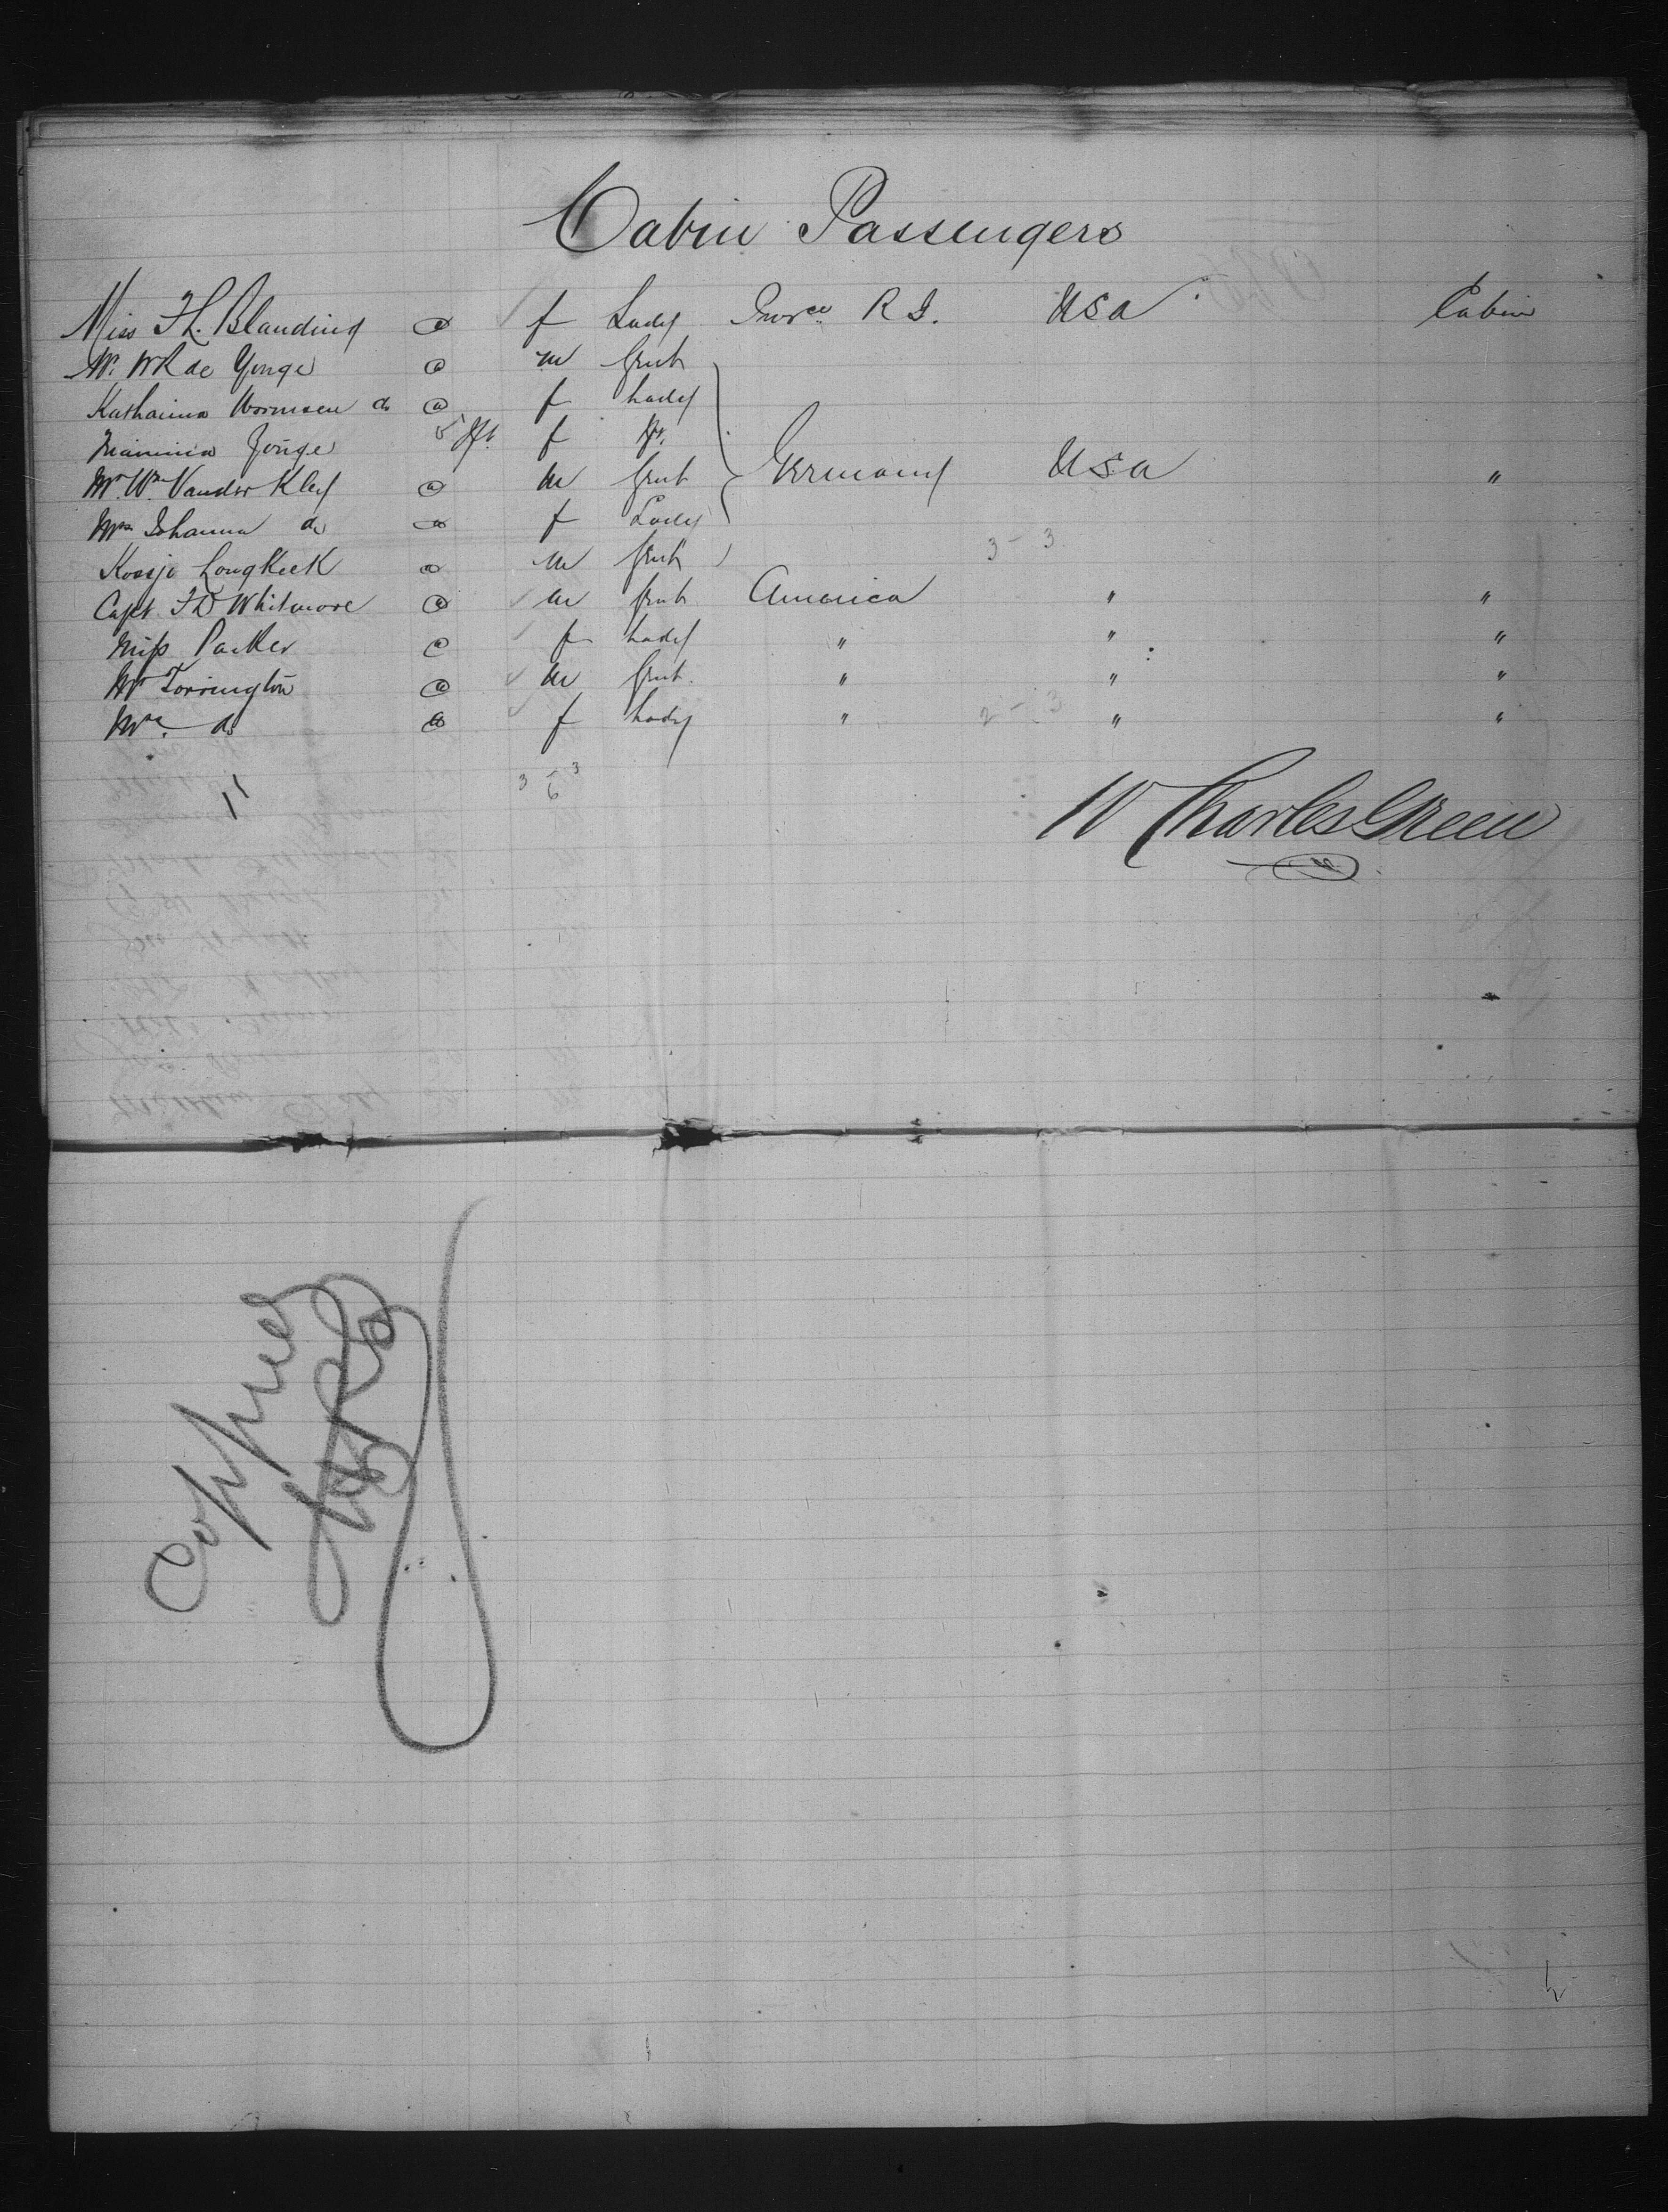 Cabin Passengers
Miss F L. Blanding a f Lady Provce R I. USA Cabin
Mr. W R de Yonge a m Gent
Katharina Wormsen do a f Lady
Yonge 5 f
Mr. Wm Vander Kley a m Gent Germany USA "
Mrs Johanna do a f Lady
Koosje LongKeek a m Gent 3 - 3
Capt. F D Whitmore a m Gent America " "
Miss Parker a f Lady " " "
Mr Torrington a m Gent. " " "
Mrs. do a f Lady " 2 - 3 " "
11 3 - 3
6
W Charles Green
Copied